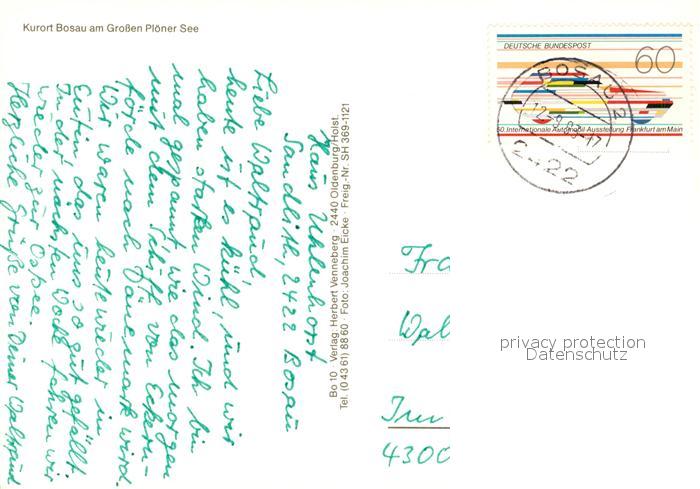 Kurort Bosau am Großen Plöner See
Haus Uhlenhorst
Sandlith, 2422 Bosau
Liebe Waltraud,
heute ist es kühl, und wir
haben starken Wind. Ich bin
mal gespannt, wie das morgen
mit dem Schiff von Eckern-
förde nach Dänemark wird.
Wir waren heute wieder in
Eutin, das uns so gut gefällt.
In der nächsten Woche fahren wir
wieder zur Ostsee.
Herzliche Grüße von Deiner Waltraud
Bo 10 Verlag: Herbert Venneberg · 2440 Oldenburg/Holst.
Tel. (0 43 61) 88 60 · Foto: Joachim Eicke · Freig.-Nr. SH 369-1121
DEUTSCHE BUNDESPOST
60
50. Internationale Automobil-Ausstellung Frankfurt am Main
BOSAU 2
2422
Fra
Wal
Im
4300
privacy protection
Datenschutz